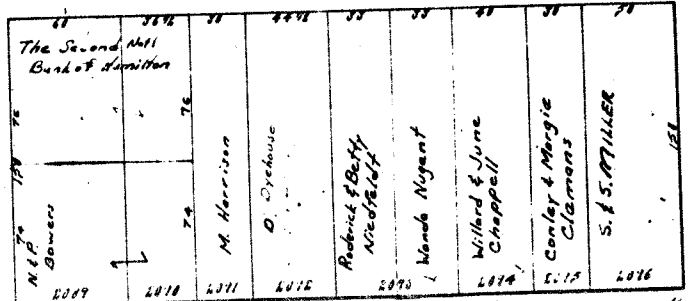 60
36
44
33
33
40
30
50
The Second Natl
Bank of Hamilton
76
76
150
74
74
150
N & P.
Bowers
M. Harrison
D. Dyehouse
Roderick & Betty
Niedfeldt
Wanda Nugent
Willard & June
Chappell
Conley & Margie
Clemons
S. & S. MILLER
2009
2010
2011
2012
2013
2014
2015
2016